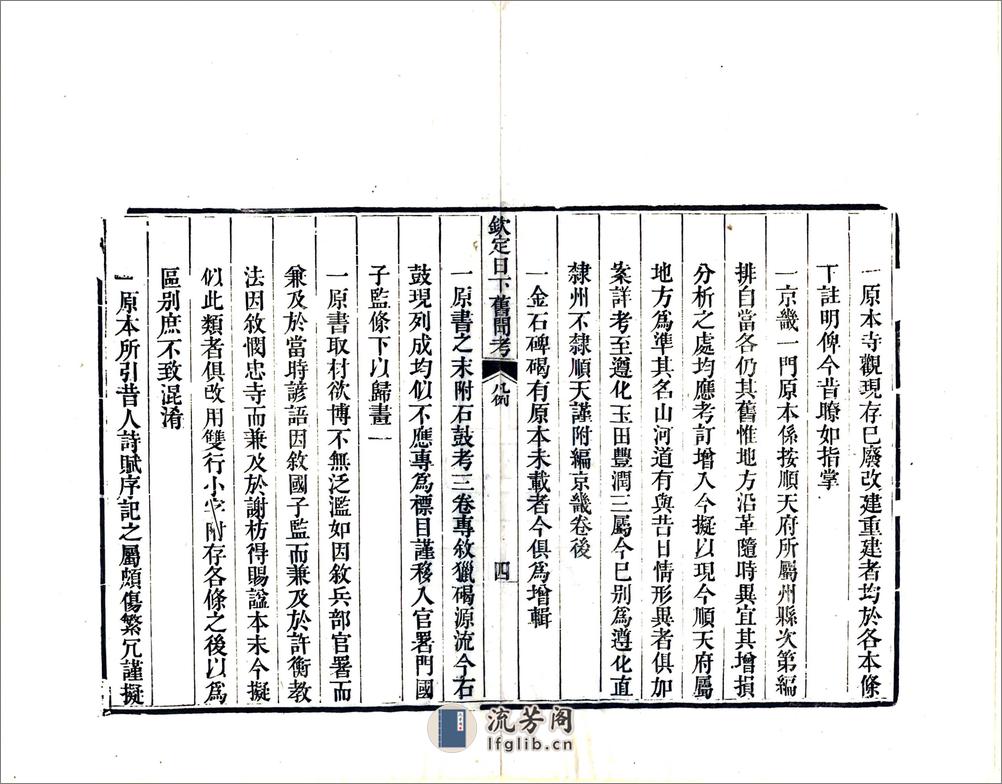 一原本寺觀現存已廢改建重建者均於各本條
下註明俾今昔瞭如指掌
一京畿一門原本係按順天府所屬州縣次第編
排自當各仍其舊惟地方沿革隨時異宜其增損
分析之處均應考訂增入今擬以現今順天府屬
地方為準其名山河道有與昔日情形異者俱加
案詳考至遵化玉田豐潤三屬今已別為遵化直
隸州不隸順天謹附編京畿卷後
一金石碑碣有原本未載者今俱為增輯
欽定日下舊聞考 凡例 四
一原書之末附石鼓考三卷專敘獵碣源流今石
鼓現列成均似不應專為標目謹移入官署門國
子監條下以歸畫一
一原書取材欲博不無泛濫如因敘兵部官署而
兼及於當時諺語因敘國子監而兼及於許衡教
法因敘憫忠寺而兼及於謝枋得賜諡本末今擬
似此類者俱改用雙行小字附存各條之後以為
區別庶不致混淆
一原本所引昔人詩賦序記之屬頗傷繁冗謹擬
流芳阁
lfglib.cn